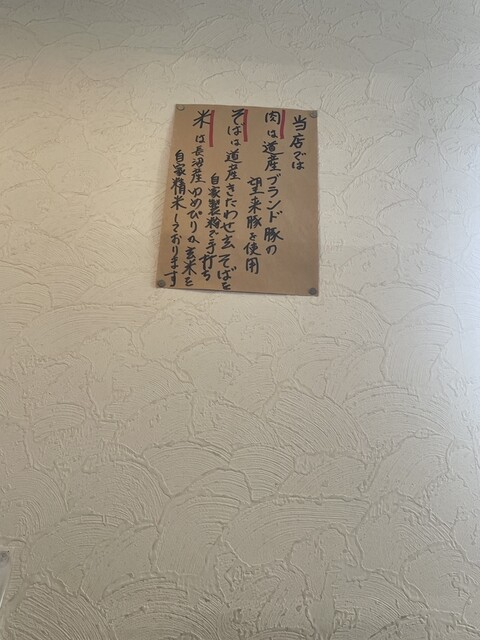 当店では
肉は道産ブランド豚の
望来豚を使用
そばは道産きたわせ玄そばを
自家製粉で手打ち
米は長沼産ゆめぴりか玄米を
自家精米しております